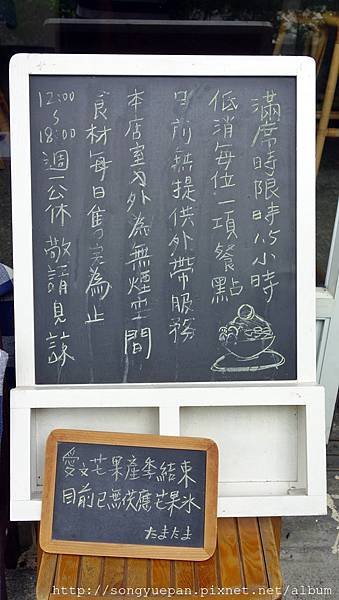 滿席時限時1.5小時
低消每位一項餐點
目前無提供外帶服務
本店室內外為無煙空間
食材每日售完為止
12:00
~
18:00 週一公休 敬請見諒
愛文芒果產季結束
目前已無供應芒果冰
たまたま
http://songyuepan.pixnet.net/album